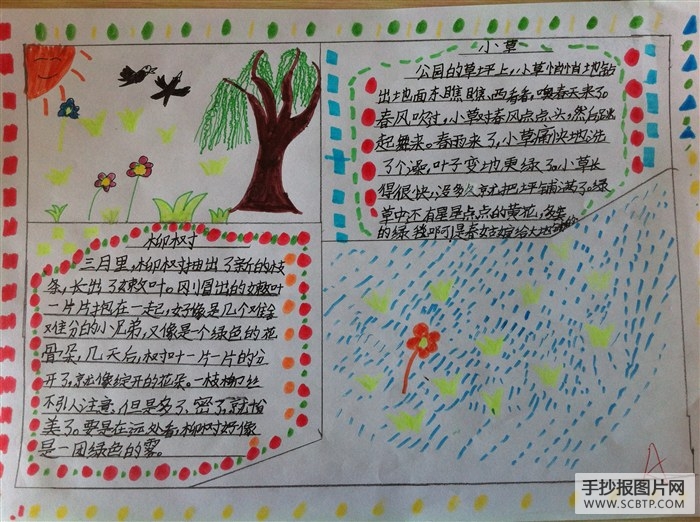 小草
公园的草坪上，小草悄悄地钻
出地面东瞧瞧、西看看，噢春天来了。
春风吹过，小草对春风点点头，然后跳
起舞来。春雨来了，小草痛快地洗
了个澡，叶子变地更绿了。小草长
得很快，没多久就把坪铺满了。绿
草中不有星星点点的黄花，
的绿 可是春姑娘给大地
柳树
三月里，柳树抽出了新的枝
条，长出了嫩叶。刚冒出的嫩叶
一片片抱在一起，好像是几个难拿
难分的小兄弟，又像是个绿色的花
骨朵，几天后，树叶一片一片的分
开了，就像绽开的花朵。一枝柳丝
不引人注意，但是多了、密了，就恰
美了。要是在远处看，柳树好像
是一团绿色的雾。
A
手抄报图片网
WWW.SCBTP.COM